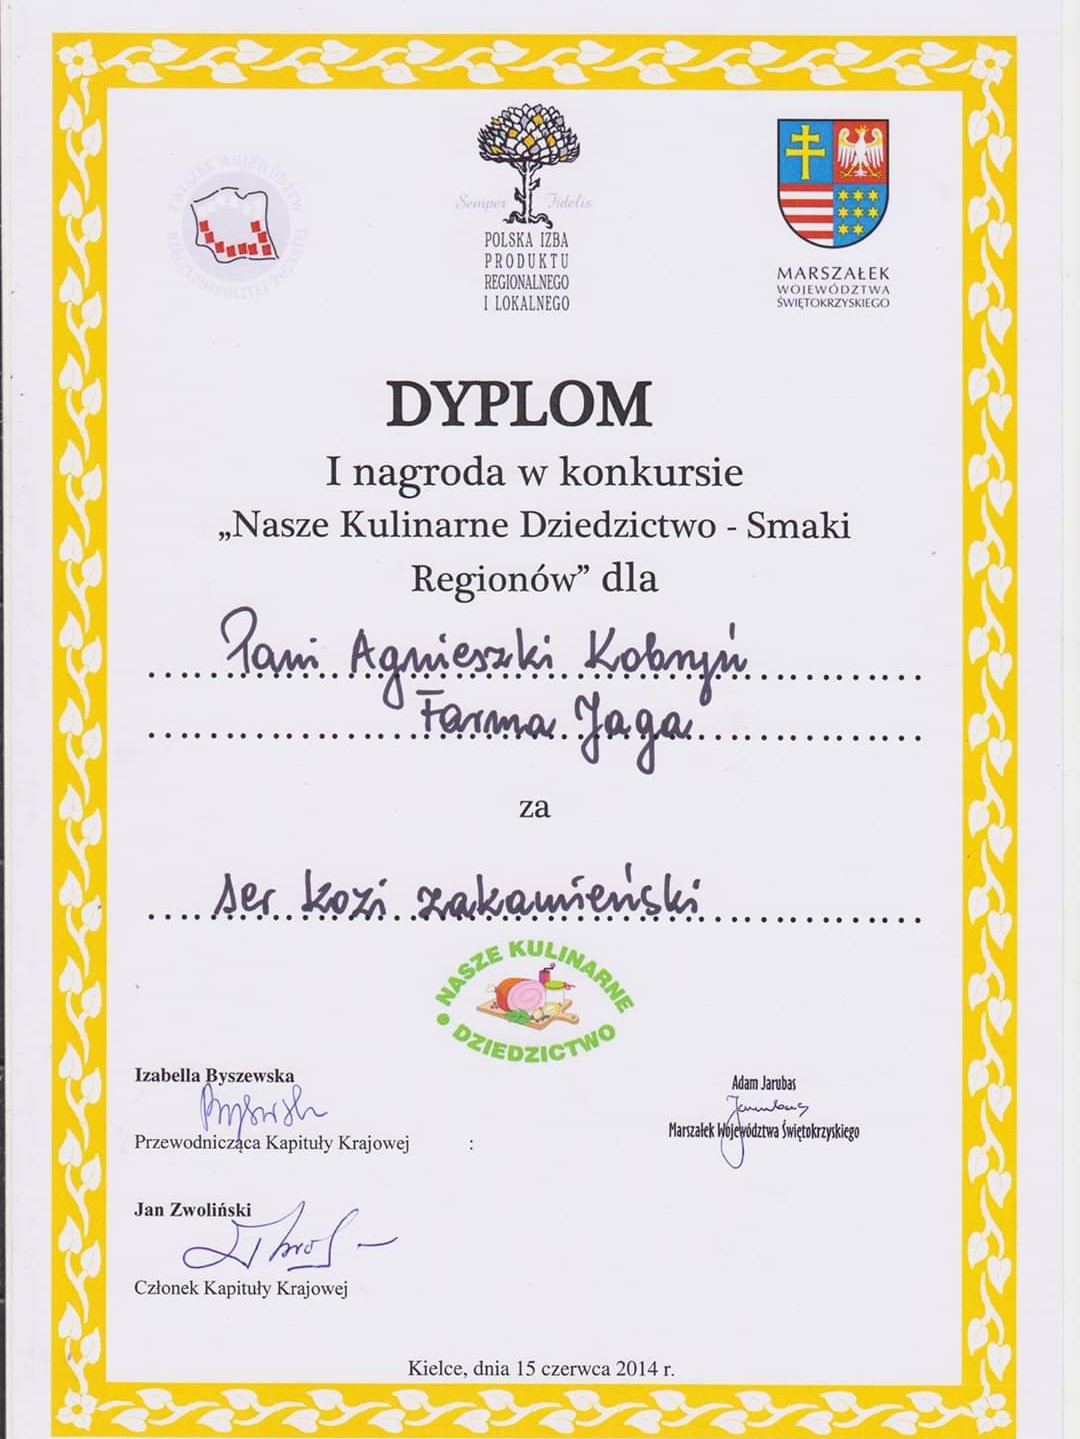 ZWIĄZEK WOJEWÓDZTW
RZECZYPOSPOLITEJ POLSKIEJ
Semper Fidelis
POLSKA IZBA
PRODUKTU
REGIONALNEGO
I LOKALNEGO
MARSZAŁEK
WOJEWÓDZTWA
ŚWIĘTOKRZYSKIEGO
DYPLOM
I nagroda w konkursie
„Nasze Kulinarne Dziedzictwo - Smaki
Regionów” dla
Pani Agnieszki Kobryń
Farma Jaga
za
ser kozi zakamieński
NASZE KULINARNE
DZIEDZICTWO
Izabella Byszewska
Przewodnicząca Kapituły Krajowej :
Adam Jarubas
Marszałek Województwa Świętokrzyskiego
Jan Zwoliński
Członek Kapituły Krajowej
Kielce, dnia 15 czerwca 2014 r.